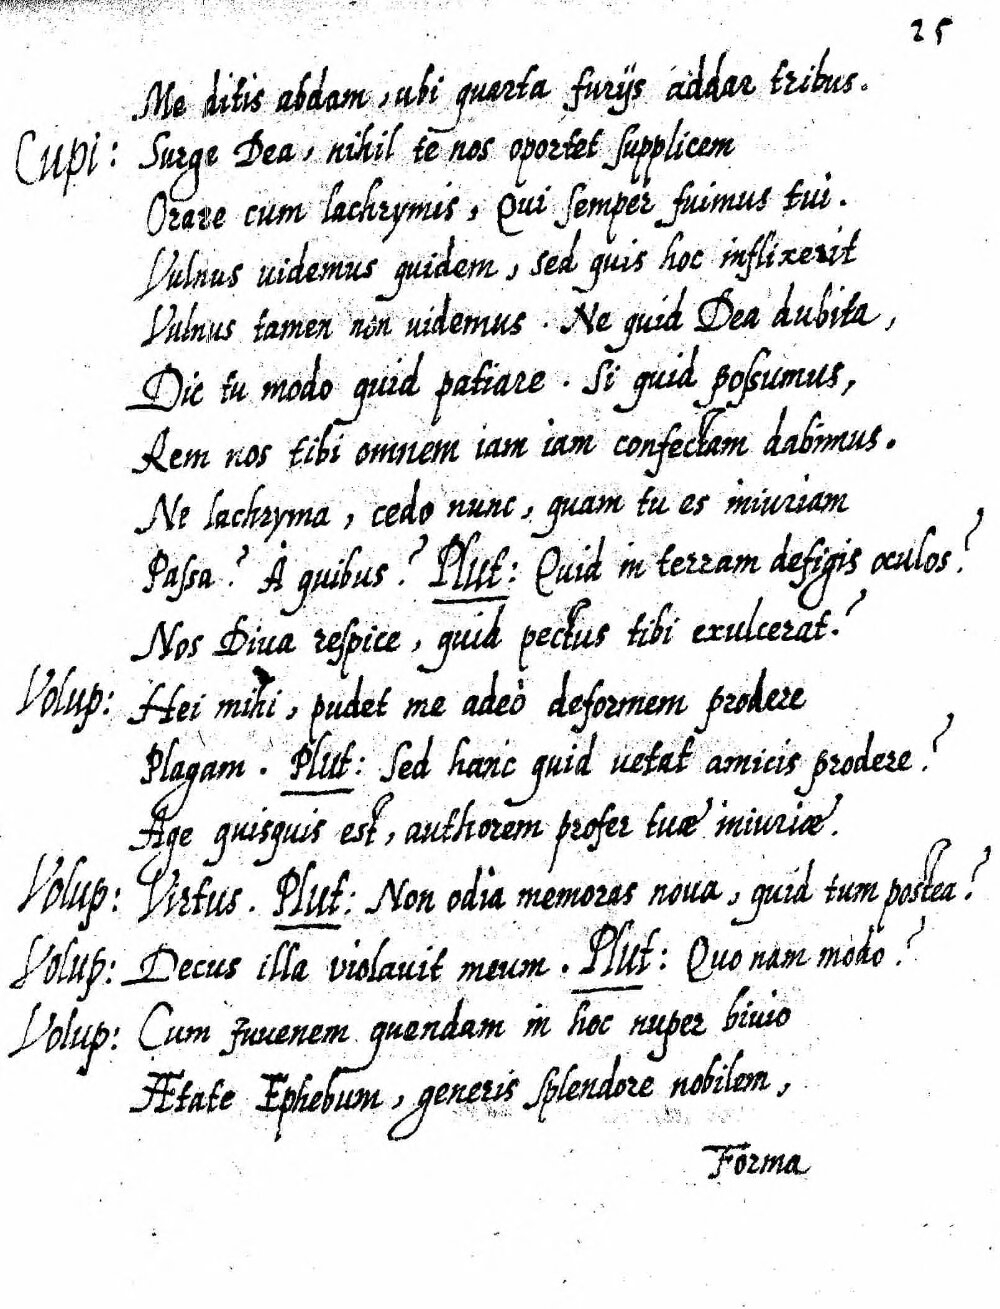 25
Me ditis abdam, ubi quarta furijs addar tribus.
Cupi: Surge Dea, nihil te nos oportet supplicem
Orare cum lachrymis, Qui semper fuimus tui.
Vulnus uidemus quidem, sed quis hoc inflixerit
Vulnus tamen non uidemus. Ne quid Dea dubita,
Dic tu modo quid patiare. Si quid possumus,
Rem nos tibi omnem iam iam confectam dabimus.
Ne lachryma, cedo nunc, quam tu es iniuriam
Passa? À quibus? Plut: Quid in terram defigis oculos?
Nos Diua respice, quid pectus tibi exulcerat?
Volup: Hei mihi, pudet me adeò deformem prodere
Plagam. Plut: Sed hanc quid uetat amicis prodere?
Age quisquis est, authorem profer tuæ iniuriæ.
Volup: Virtus. Plut: Non odia memoras noua, quid tum postea?
Volup: Decus illa violauit meum. Plut: Quo nam modo?
Volup: Cum Juuenem quendam in hoc nuper biuio
Ætate Ephebum, generis splendore nobilem,
Forma